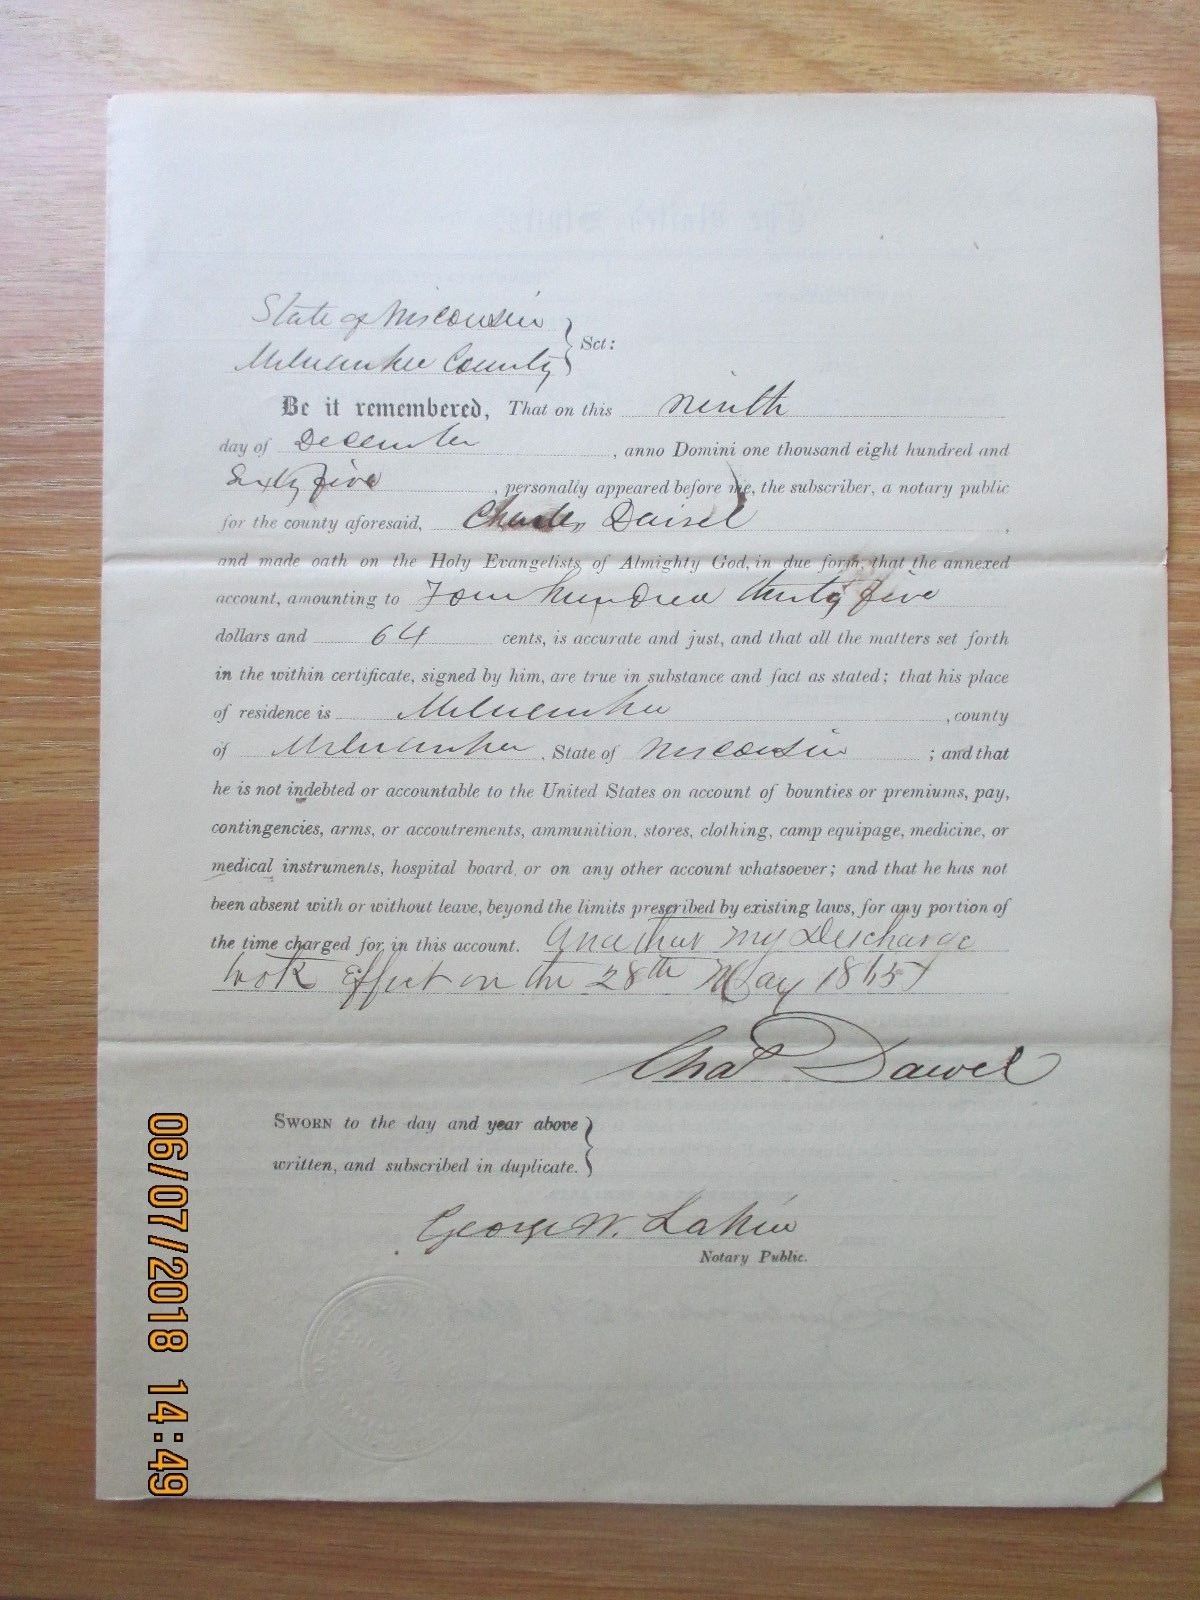 State of Wisconsin
Milwaukee County } Sct:
Be it remembered, That on this ninth
day of December, anno Domini one thousand eight hundred and
Sixty five, personally appeared before me, the subscriber, a notary public
for the county aforesaid, Charles
and made oath on the Holy Evangelists of Almighty God, in due form, that the annexed
account, amounting to Four hundred thirty five
dollars and 64 cents, is accurate and just, and that all the matters set forth
in the within certificate, signed by him, are true in substance and fact as stated; that his place
of residence is Milwaukee, county
of Milwaukee, State of Wisconsin; and that
he is not indebted or accountable to the United States on account of bounties or premiums, pay,
contingencies, arms, or accoutrements, ammunition, stores, clothing, camp equipage, medicine, or
medical instruments, hospital board, or on any other account whatsoever; and that he has not
been absent with or without leave, beyond the limits prescribed by existing laws, for any portion of
the time charged for in this account. And that my Discharge
took effect on the 28th May 1865
Chas
SWORN to the day and year above
written, and subscribed in duplicate. }
George W. Lakin
Notary Public.
06/07/2018 14:49